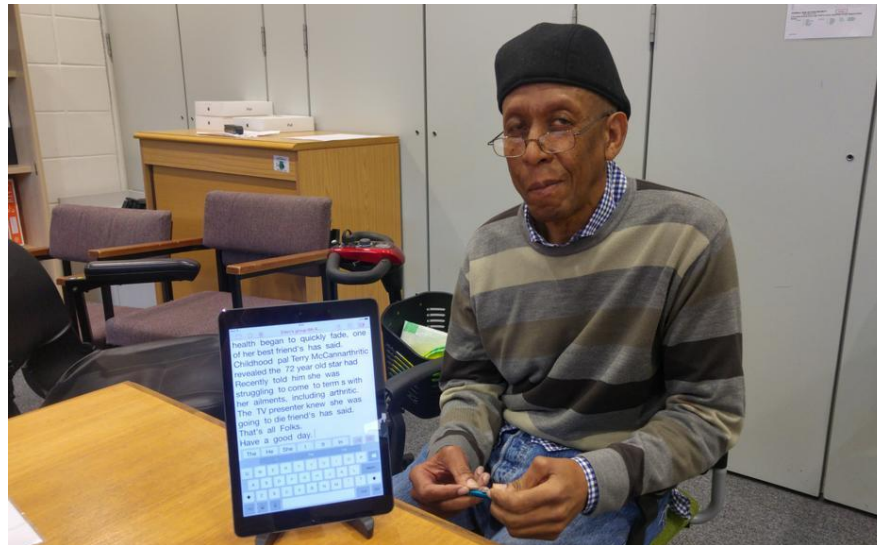 health began to quickly fade, one
of her best friend's has said.
Childhood pal Terry McCannarthritic
revealed the 72 year old star had
Recently told him she was
struggling to come to term s with
her ailments, including arthritic.
The TV presenter knew she was
going to die friend's has said.
That's all Folks.
Have a good day.
The He She I